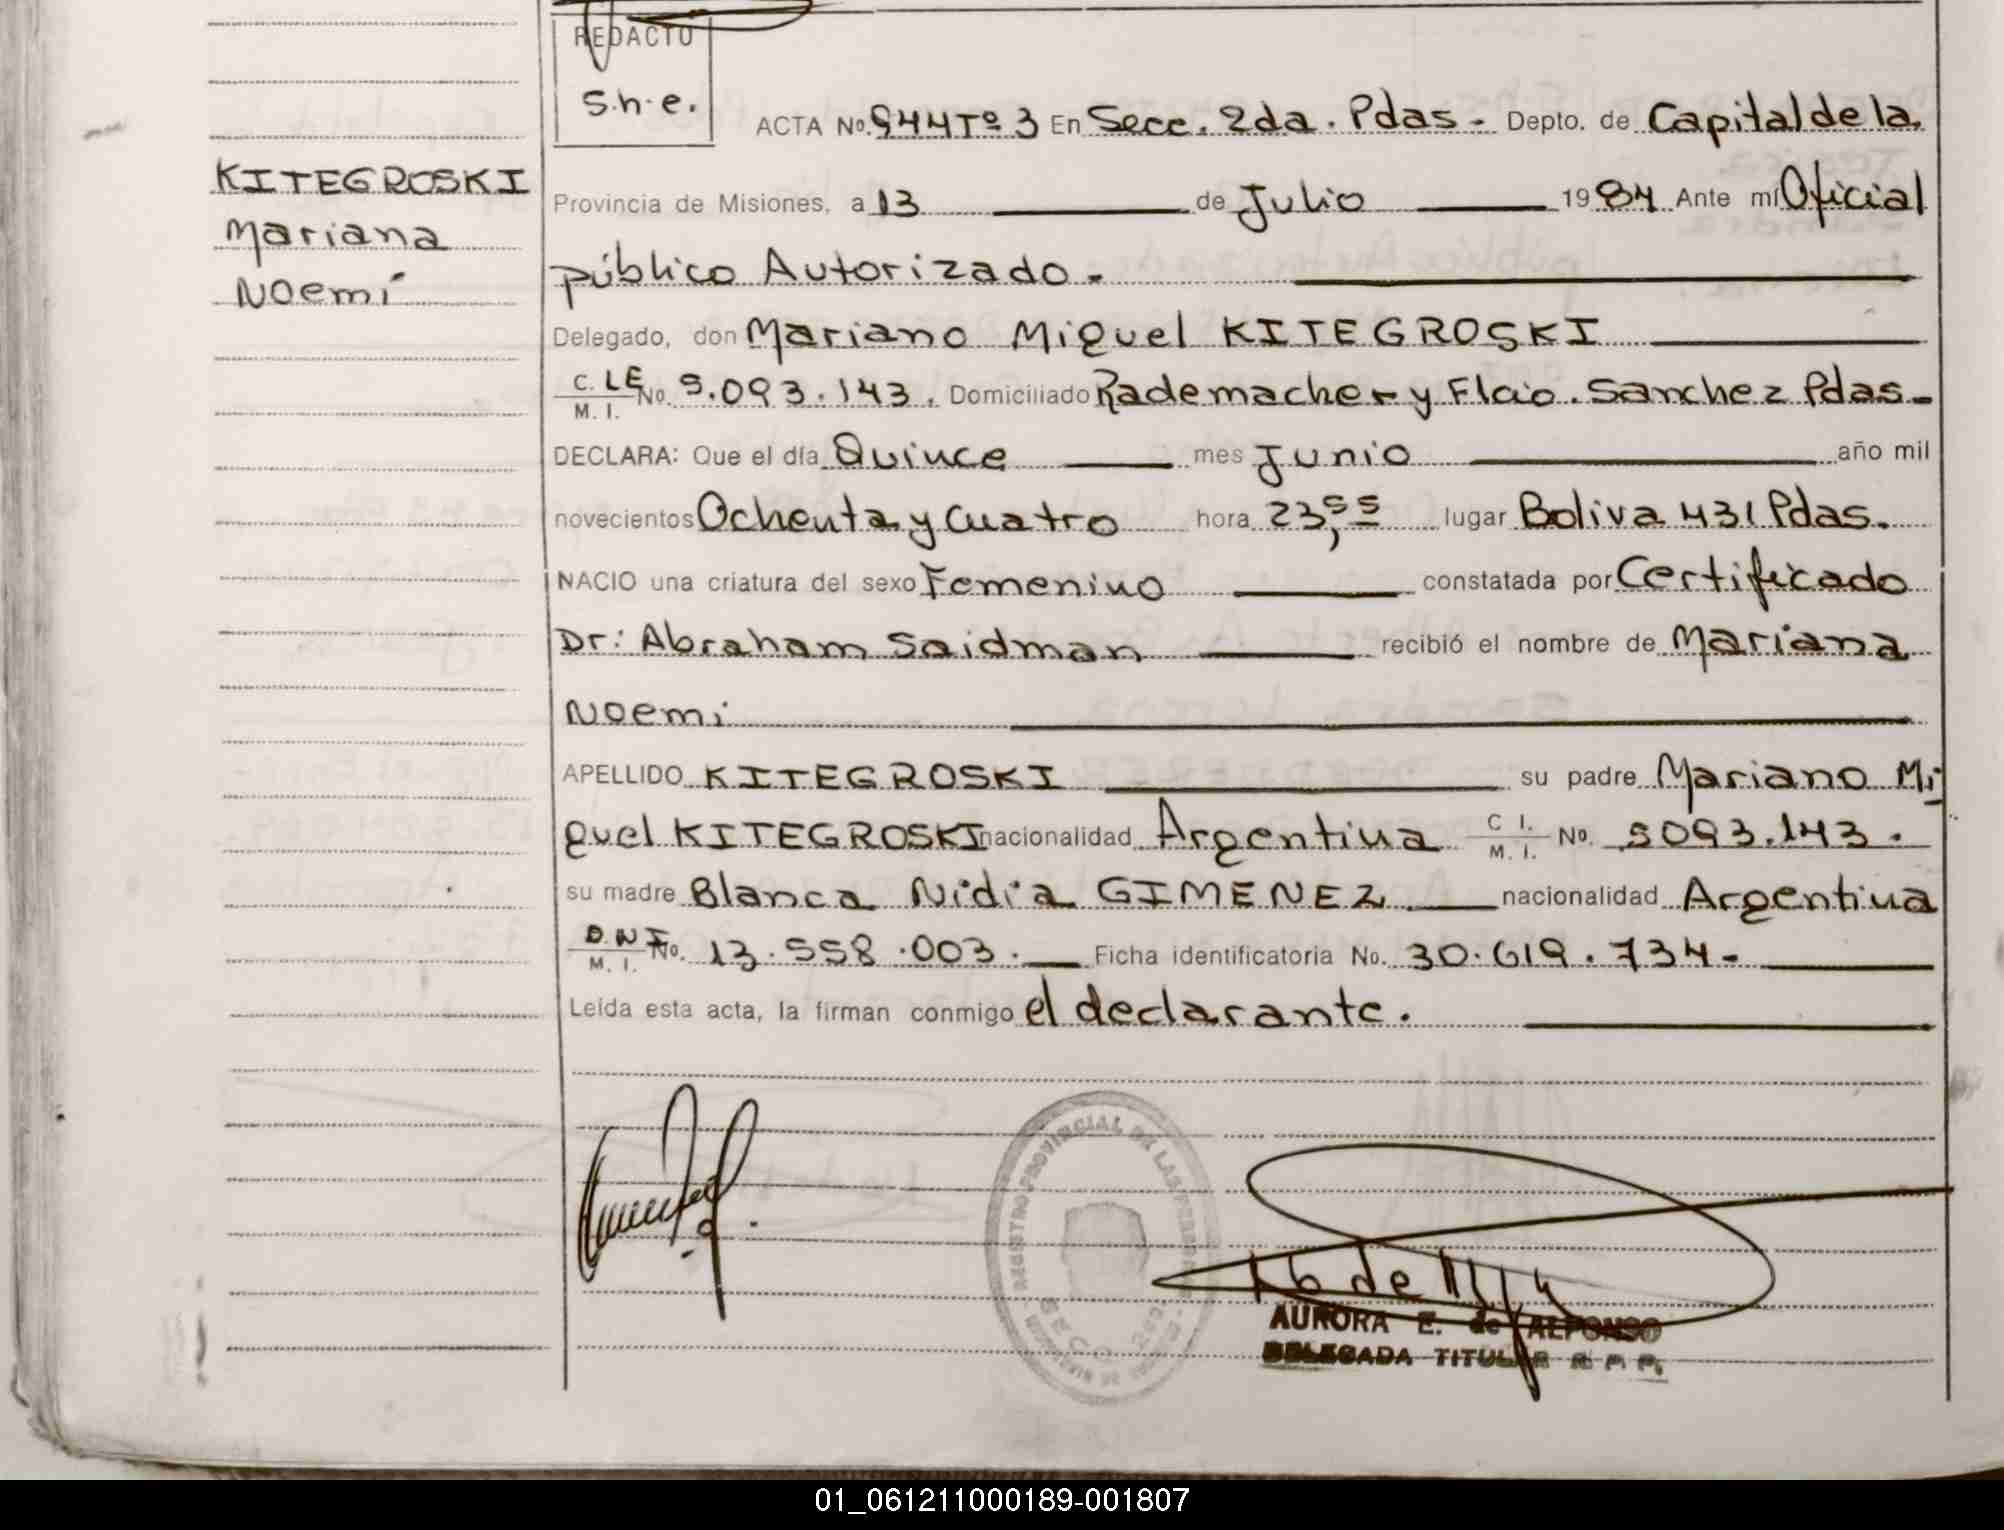 REDACTO
S.h.e.
ACTA No. 944 Tº 3 En Secc. 2da. Pdas- Depto. de Capital de la
KITEGROSKI
Mariana
Noemí
Provincia de Misiones, a 13 de Julio 1984 Ante mí Oficial
público Autorizado-
Delegado, don Mariano Miguel KITEGROSKI
C. LE M. I. No. 5.093.143. Domiciliado Rademacher y Flcio. Sanchez Pdas-
DECLARA: Que el día Quince mes Junio año mil
novecientos Ochenta y Cuatro hora 23,55 lugar Boliva 431 Pdas.
NACIO una criatura del sexo Femenino constatada por Certificado
Dr: Abraham Saidman recibió el nombre de Mariana
Noemi
APELLIDO KITEGROSKI su padre Mariano Mi
guel KITEGROSKI nacionalidad Argentina C I. M. I. No. 5093.143.
su madre Blanca Nidia GIMENEZ nacionalidad Argentina
D.N.I. M. I. No. 13.558.003. Ficha identificatoria No. 30.619.734-
Leída esta acta, la firman conmigo el declarante.
REGISTRO PROVINCIAL DE LAS PERSONAS
AURORA E. de ALFONSO
DELEGADA TITULAR R. P. P.
01_061211000189-001807